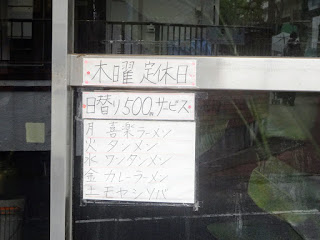 木曜定休日
日替り500円サービス
月 喜楽ラーメン
火 タンメン
水 ワンタンメン
金 カレーラーメン
土 モヤシソバ